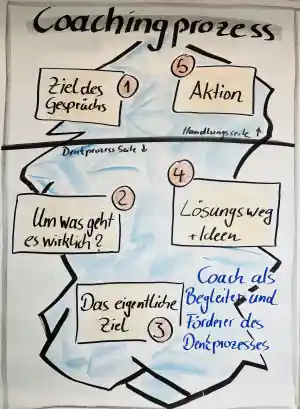 Coachingprozess
Ziel des
Gesprächs
1
5
Aktion
Handlungsseite ↑
Denkprozess Seite ↓
2
Um was geht
es wirklich?
4
Lösungsweg
+ Ideen
Das eigentliche
Ziel
3
Coach als
Begleiter und
Förderer des
Denkprozesses